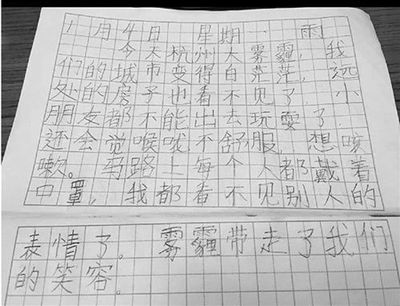 1月4日 星期一 雨
今天杭州大雾霾,我
们的城市变得白茫茫,远
处的房子也看不见了。小
朋友都不能出去玩耍了,
还会觉喉咙不舒服,想咳
嗽。马路上每个人都戴着
口罩,我都看不见别人的
表情了。雾霾带走了我们
的笑容。